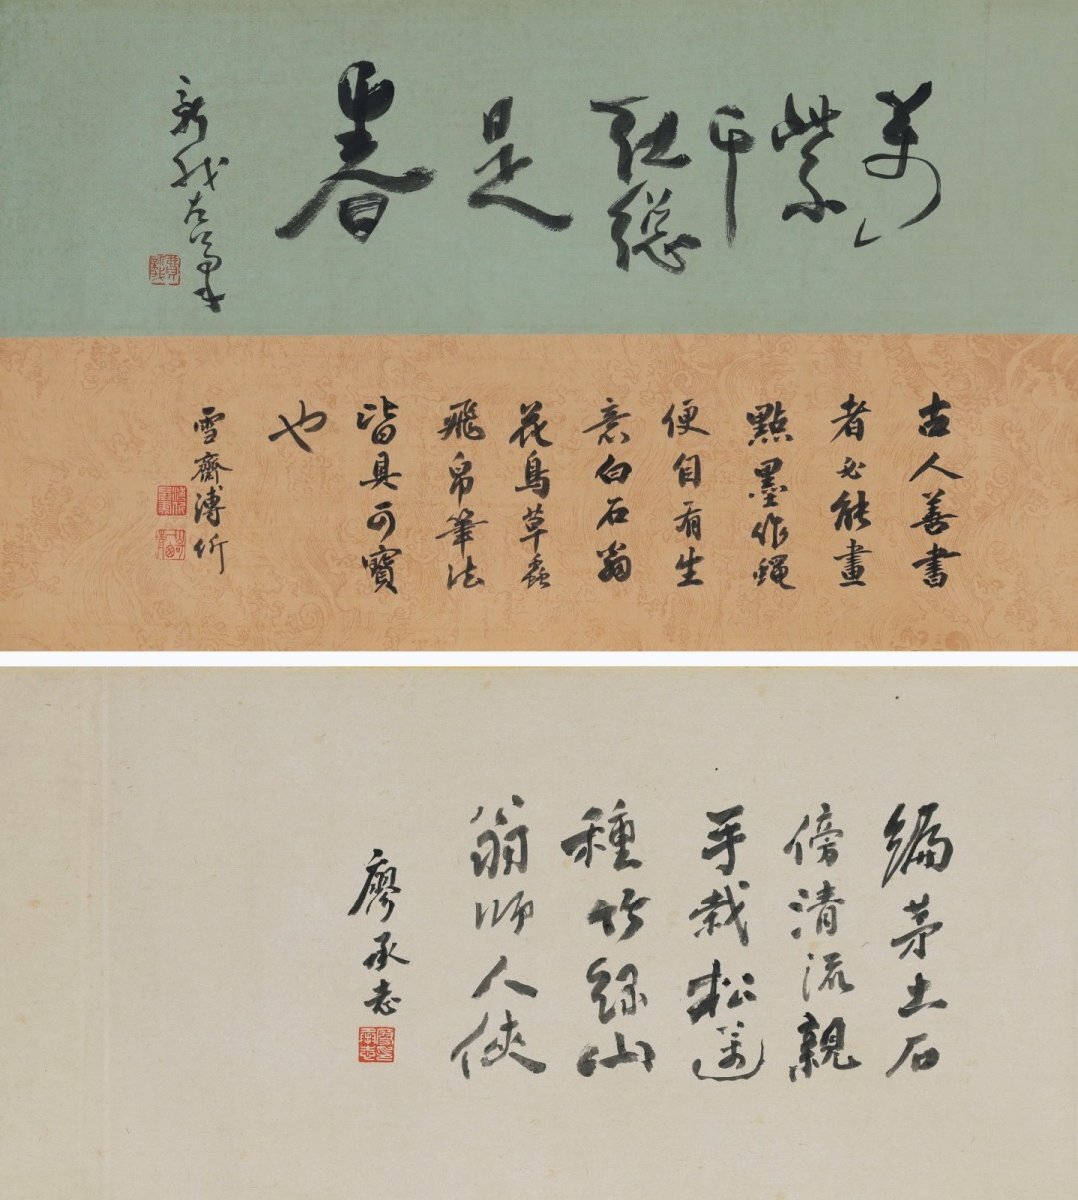 萬紫千紅總是春
新我左筆
古人善書
者必能畫
點墨作蠅
便自有生
意白石翁
花鳥草蟲
飛帛筆法
皆具可寶
也
雪齋溥伒
編茅土石
傍清流親
手栽松
種竹緑山
翁師人俠
廖承志
廖承志